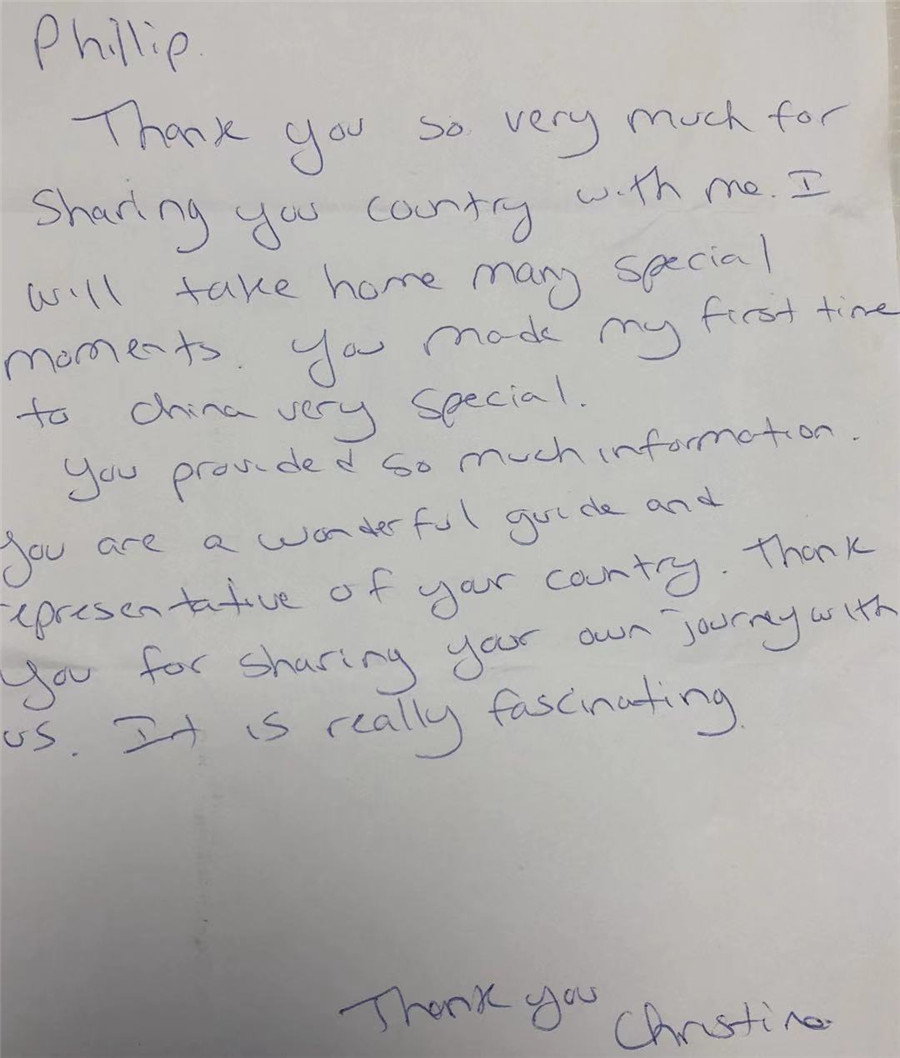 Phillip.
Thank you so very much for
Sharing you country with me. I
will take home many special
moments. You made my first time
to china very special.
You provided so much information.
you are a wonderful guide and
representative of your country. Thank
you for sharing your own journey with
us. It is really fascinating.
Thank you
Christina